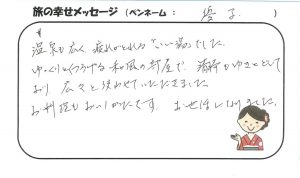 旅の幸せメッセージ（ペンネーム： 優子 ）
温泉も広く、疲れがとれるいい湯でした。
ゆっくりとくつろげる和風の部屋で、清潔もゆきとどいて
おり 広々と使わせていただきました。
お料理もおいしかったです。お世話になりました。